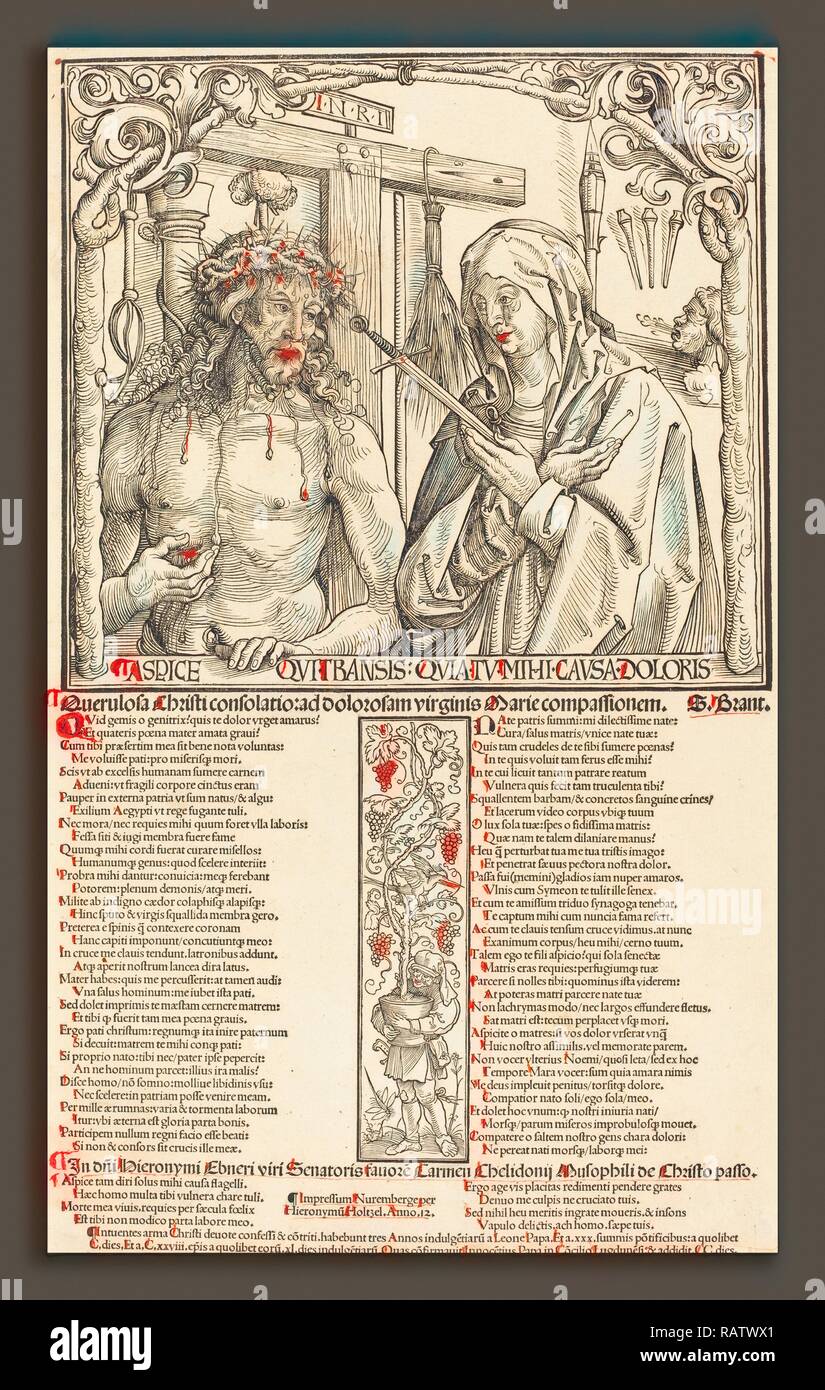 I·N·R·I
ASPICE QVI TRANSIS: QVIA TV MIHI CAVSA DOLORIS
Querulosa Christi consolatio: ad dolorosam virginis Marie compassionem. S. Brant.
QVid gemis o genitrix? quis te dolor vrget amarus?
Et quateris pœna mater amata graui?
Cum tibi præsertim mea sit bene nota voluntas:
Me voluisse pati: pro miserisq̃ mori.
Scis vt ab excelsis humanam sumere carnem
Adueni: vt fragili corpore cinctus eram
Pauper in externa patria vt sum natus/ & algu:
Exilium Aegypti vt rege fugante tuli.
Nec mora/ nec requies mihi quum foret vlla laboris:
Fessa siti & iugi membra fuere fame
Quumq̃ mihi cordi fuerat curare misellos:
Humanumq̃ genus: quod scelere interiit:
Probra mihi dantur: conuicia: meq̃ ferebant
Potorem: plenum demonis/ atq̃ meri.
Milite ab indigno cædor colaphisq̃ alapisq̃:
Hinc sputo & virgis squallida membra gero.
Preterea e spinis q̃ contexere coronam
Hanc capiti imponunt/ concutiuntq̃ meo:
In cruce me clauis tendunt. latronibus addunt.
Atq̃ aperit nostrum lancea dira latus.
Mater habes: quis me percusserit: at tamen audi:
Vna salus hominum: me iubet ista pati.
Sed dolet imprimis te mæstam cernere matrem:
Et tibi q̃ fuerit tam mea pœna grauis.
Ergo pati christum: regnumq̃ ita inire paternum
Si decuit: matrem te mihi conq̃ pati:
Si proprio nato: tibi nec/ pater ipse pepercit:
An ne hominum parcet: illius ira malis?
Disce homo/ nõ somno: molliue libidinis vsu:
Nec scelere: in patriam posse venire meam.
Per mille ærumnas: varia & tormenta laborum
Itur: vbi æterna est gloria parta bonis.
Participem nullum regni facio esse beati:
Si non & consors sit crucis ille meæ.
NAte patris summi: mi dilectissime nate:
Cura/ salus matris/ vnice nate tuæ:
Quis tam crudeles de te sibi sumere pœnas?
In te quis voluit tam ferus esse mihi?
In te cui licuit tantum patrare reatum
Vulnera quis fecit tam truculenta tibi?
Squallentem barbam/ & concretos sanguine crines/
Et lacerum video corpus vbiq̃ tuum
O lux sola tuæ: spes o fidissima matris:
Quæ nam te talem dilaniare manus?
Heu q̃ perturbat tua me tua tristis imago:
Et penetrat sæuus pectora nostra dolor.
Passa fui (memini) gladios iam nuper amaros.
Vlnis cum Symeon te tulit ille senex.
Et cum te amissum triduo synagoga tenebat.
Te captum mihi cum nuncia fama refert.
Ac cum te clauis tensum cruce vidimus. at nunc
Exanimum corpus/ heu mihi/ cerno tuum.
Talem ego te fili aspicio? qui sola senectæ
Matris eras requies: perfugiumq̃ tuæ
Parcere si nolles tibi: quominus ista viderem:
At poteras matri parcere nate tuæ
Non lachrymas modo/ nec largos effundere fletus.
Sat matri est: tecum perplacet vsq̃ mori.
Aspicite o matres: si vos dolor vrserat vnq̃
Huic nostro assimilis. vel memorate parem.
Non vocer vlterius Noemi/ quosi leta/ sed ex hoc
Tempore Mara vocer: sum quia amara nimis
Me deus impleuit penitus/ torsitq̃ dolore.
Compatior nato soli/ ego sola/ meo.
Et dolet hoc vnum: q̃ nostri iniuria nati/
Morsq̃/ parum miseros improbulosq̃ mouet.
Compatere o saltem nostro gens chara dolori:
Ne pereat nati morsq̃/ laborq̃ mei:
In dñi Hieronymi Ebneri viri Senatoris fauorẽ Carmen Chelidonij Musophili de Christo passo.
Aspice tam diri solus mihi causa flagelli.
Hæc homo multa tibi vulnera chare tuli.
Morte mea viuis. requies per sæcula fœlix
Est tibi non modico parta labore meo.
Impressum Nuremberge per
Hieronymũ Holtzel. Anno. 12.
Ergo age vis placitas redimenti pendere grates
Denuo me culpis ne cruciato tuis.
Sed nihil heu meritis ingrate moueris. & insons
Vapulo delictis. ach homo. sæpe tuis.
Intuentes arma Christi deuote confessi & cõtriti. habebunt tres Annos indulgẽtiarũ a Leone Papa. Et a .xxx. summis põtificibus: a quolibet
C. dies. Et a. C. xxviii. epĩs a quolibet eorũ. xl. dies indulgẽtiarũ. Quas cõfirmauit Innocẽtius Papa in Cõcilio Lugdunẽsi. & addidit. CC. dies.
alamy
alamy
Image ID: RATWX1
www.alamy.com